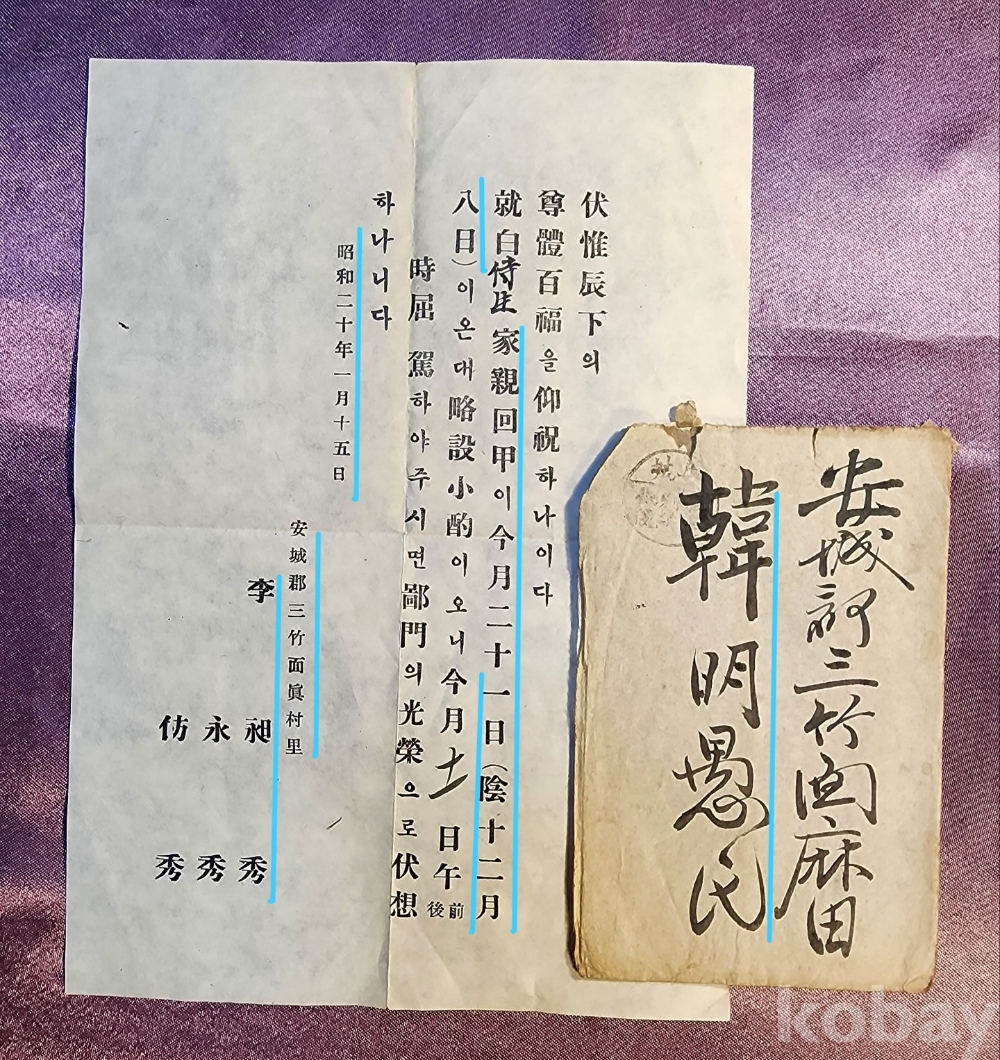 伏惟辰下의
尊體百福을仰祝하나이다
就白侍生家親回甲이今月二十一日(陰十二月
八日)이온대略設小酌이오니今月 日午前後
時屈 駕하야주시면鄙門의光榮으로伏想
하나니다
昭和二十年一月十五日
安城郡三竹面眞村里
李 昶秀
永秀
仿秀
安城郡三竹面麻田
韓明愚氏
kobay